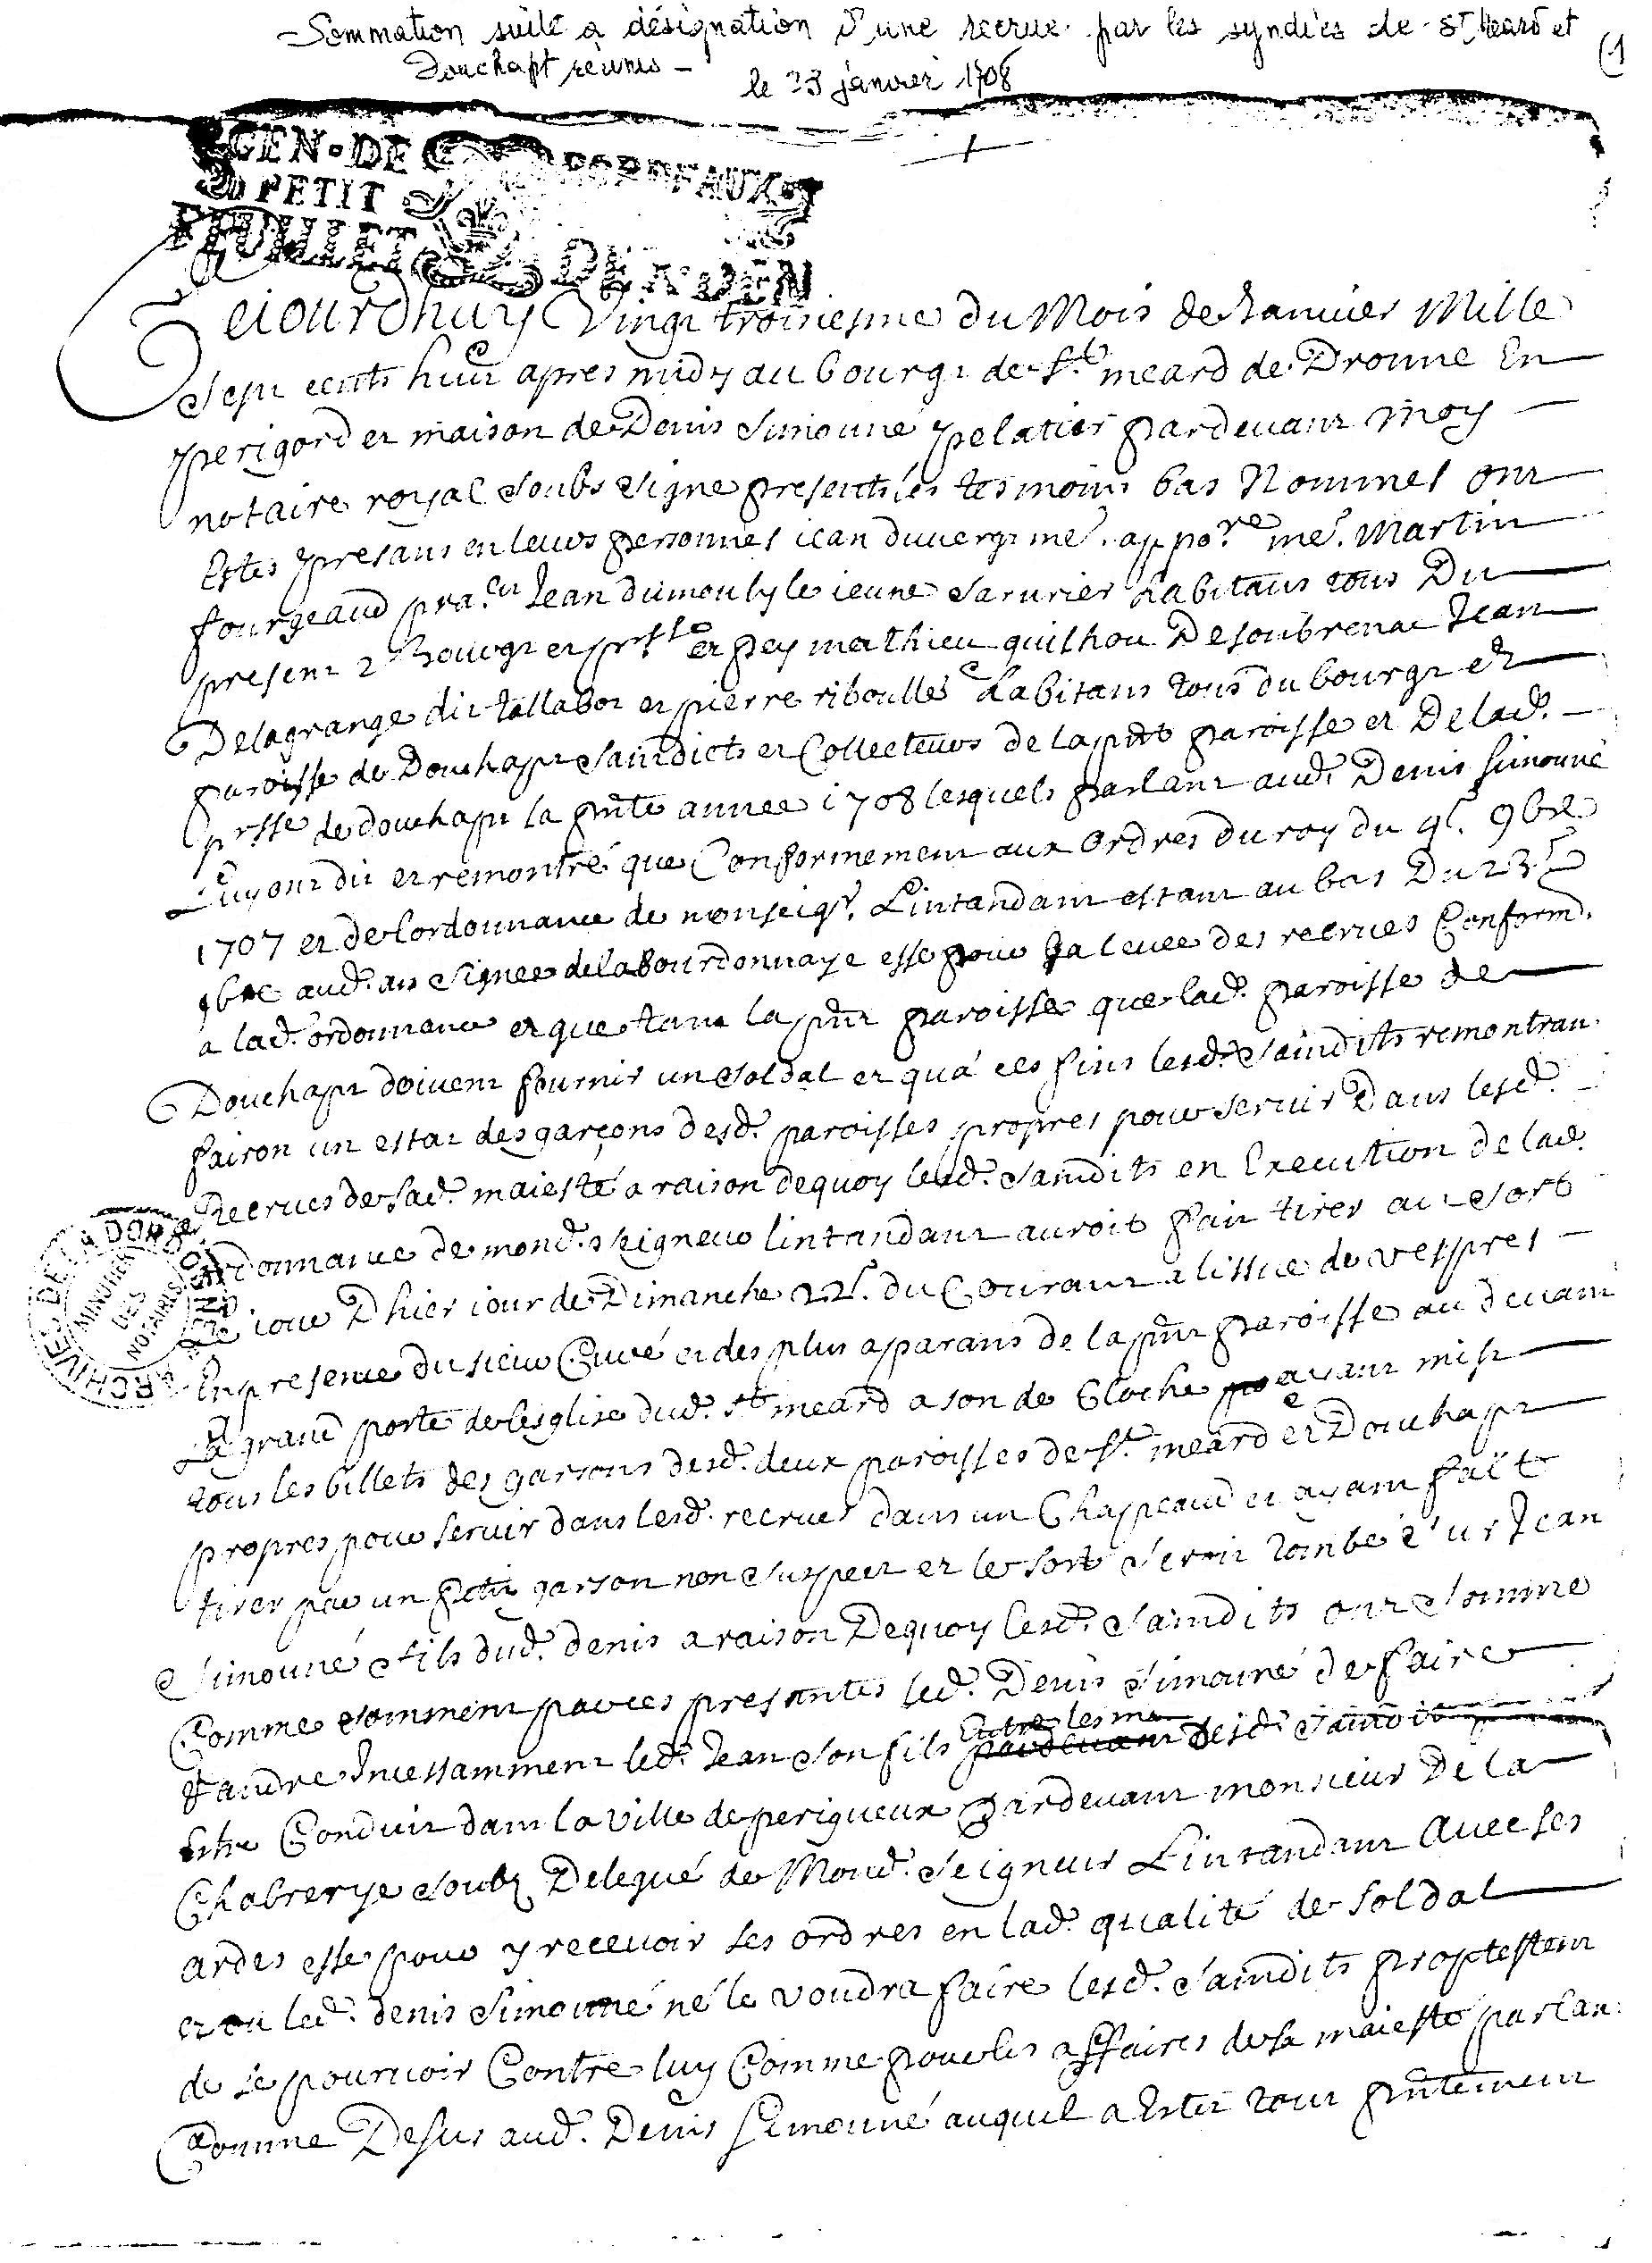 Sommation suite a désignation d'une recrue par les syndics de St Meard et
Douchapt réunis -
le 23 janvier 1708
(1
GEN · DE BORDEAUX
PETIT
FEUILLET DE DEN
Ceiourdhuy Vingt troiziesme du Mois de Januier Mille
sept cents huit apres midy au bourgt de St meard de Dronne En
perigord et maison de Denis Simouné pelatier pardeuant moy
notaire royal soubs signe presents les tesmoins bas Nommes ont
Estes presans en leurs personnes iean duuergt me. appore. me. Martin
fourgeaud pracn Jean dumouly le ieune sarurier habitans tous Du
present Bourgt et prsse et pey mathieu guilhou Desoubrenac Jean
Delagrange dit tallabot et pierre riboulle habitans tous du bourgt et
paroisse de Douchapt saindicts et Collecteurs de la pnte paroisse et De lad.
prsse de douchapt la pnte annee 1708 lesquels parlant aud. Denis Simouné
Luy ont dit et remontré que Conformement aux Ordres du roy du 9bre
1707 et de lordonnance de monseigr. Lintandant estant au bas Du 23
9bre aud. an Signee de la Bourdonnaye esse pour La leuee des recrues Conformt.
a lad. ordonnance et que tant la pnt paroisse que lad. paroisse de
Douchapt doiuent fournir un soldat et qua ces fins lesd. saindits remontran
fairon un estat des garçons desd. paroisses propres pour seruir Dans lesd.
Recrues de sad. maiesté a raison dequoy lesd. saindits en Execution de lad.
ordonnance de mond. seigneur lintandant auroit fait tirer au sort
le iour Dhier iour de Dimanche 22e. du Courant a lissue de vespres
En presence du sieur Curé et des plus aparans de la pnt paroisse au deuant
La grand porte de lesglise dud. st meard a son de Cloche ayant mist
tous les billets des garsons desd. deux paroisses de St. meard et Douchapt
propres pour seruir dans lesd. recrues dans un Chapeaud et ayant fait
tirer par un petit garson non suspect et le sort seroit tombé sur Jean
Simouné fils dud. denis a raison Dequoy lesd. saindits ont somme
Comme somment par ces presantes led. Denis Simouné de faire
randre Incessamment led. Jean son fils Entre les ma pardeuant desd. saindit
Estre Conduit dans la ville de perigueux pardeuant monsieur De la
Chabrerye soubz Delegué de Mond. seigneur Lintandant Auec ses
ardes esse pour y receuoir ses ordres en lad. qualité de soldat
et ou led. denis Simouné né le voudra faire lesd. saindits proptestent
de se pouruoir Contre luy Comme pour les affaires de sa maiesté parlan
Comme Desus aud. Denis Simouné auquel a Esté tout pntement
ARCHIVES DE LA DORDOGNE
MINUTIER
DES
NOTAIRES